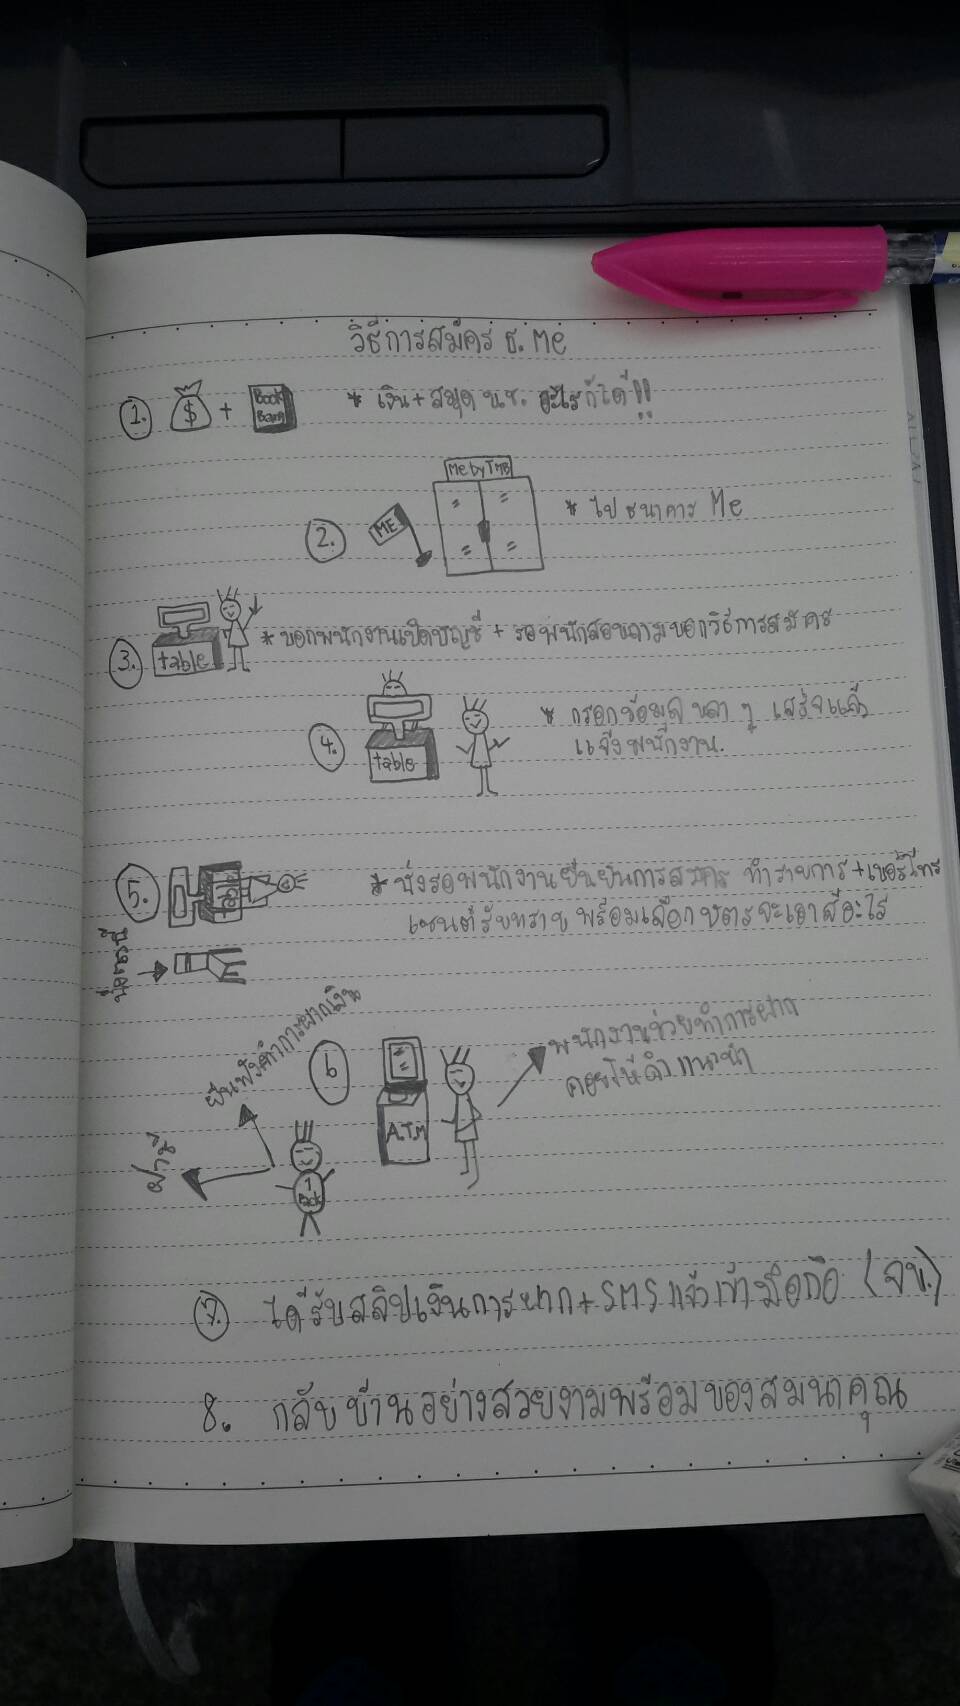 วิธีการสมัคร ธ. Me
1. $ + Book Bank * เงิน + สมุด บช. อะไรก็ได้!!
Me by TMB
2. ME * ไป ธนาคาร Me
3. table * บอกพนักงานเปิดบัญชี + รอพนักสอบถามบอกวิธีการสมัคร
4. table * กรอกข้อมูล บลา ๆ เสร็จแล้ว
แจ้งพนักงาน.
5. * นั่งรอพนักงานยืนยันการสมัคร ทำรายการ + เบอร์โทร
เซนต์รับทราบ พร้อมเลือกบัตรจะเอาสีอะไร
ยืนฟังคำการฝากเงิน
6 A.T.M พนักงานช่วยทำการฝาก
คอยให้คำแนะนำ
7. ได้รับสลิปเงินการฝาก + SMS แจ้งเข้ามือถือ (จบ.)
8. กลับบ้านอย่างสวยงามพร้อมของสมนาคุณ